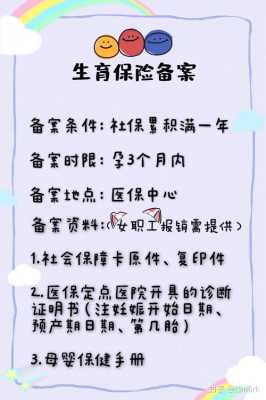 生育保险备案
备案条件:社保累积满一年
备案时限:孕3个月内
备案地点:医保中心
备案资料:(女职工报销需提供)
1.社会保障卡原件、复印件
2.医保定点医院开具的诊断
证明书(注妊娠开始日期、
预产期日期、第几胎)
3.母婴保健手册